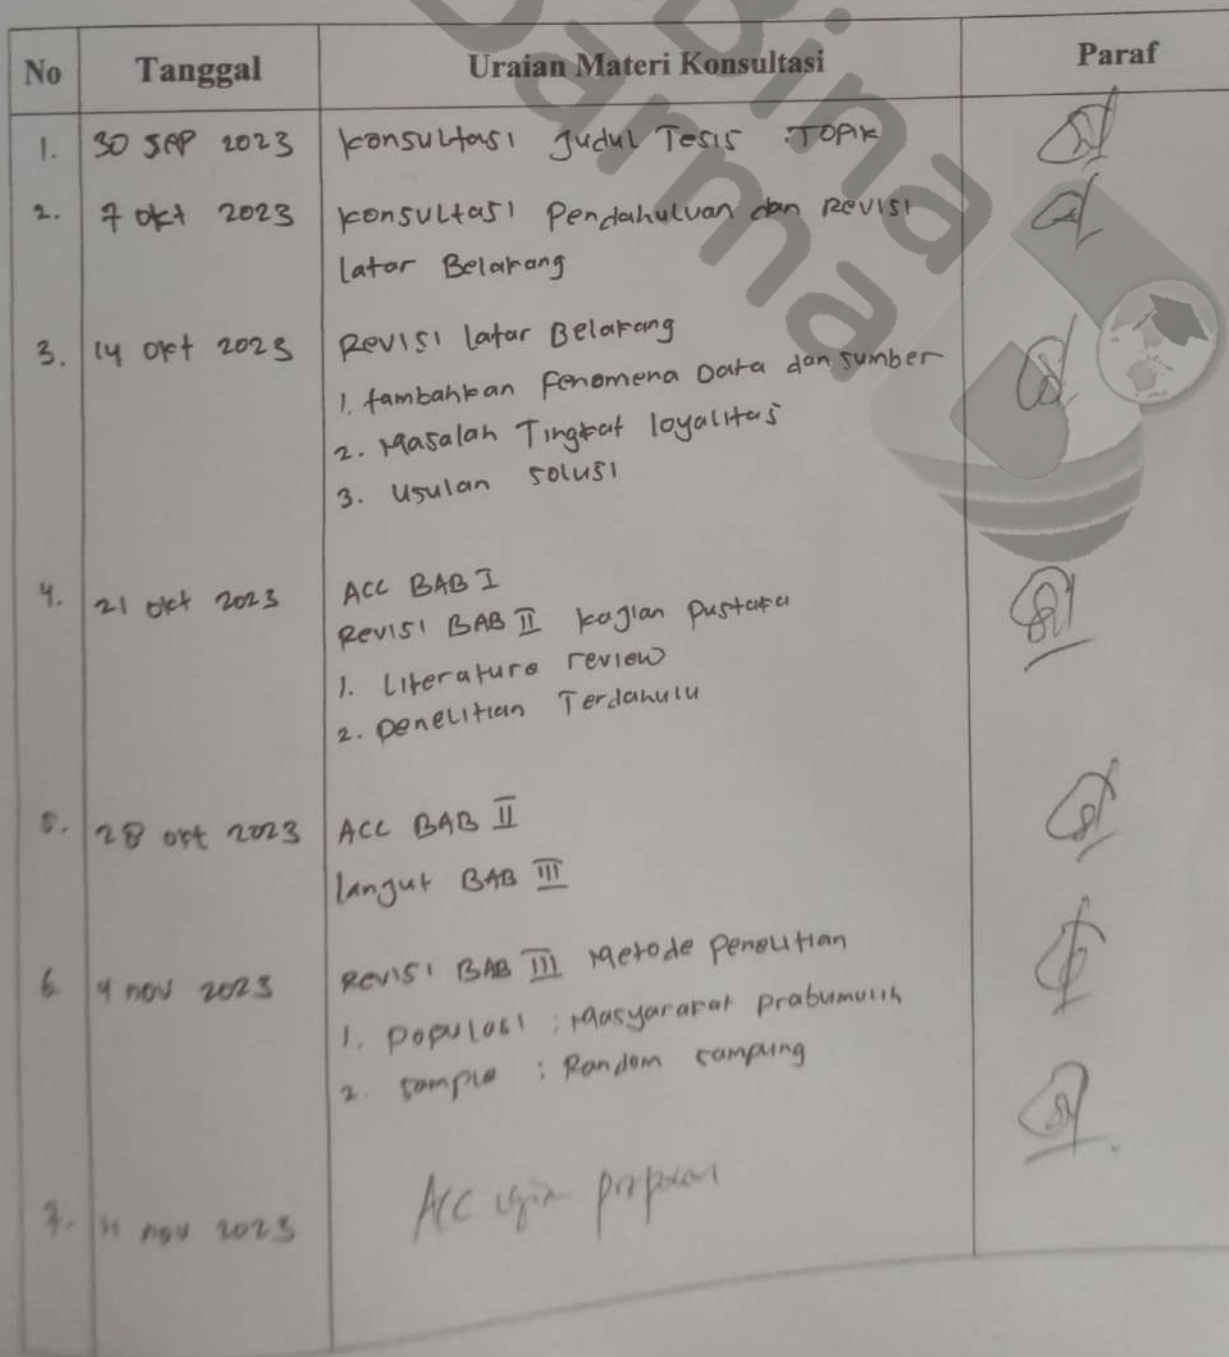 Bina
Darma
No Tanggal Uraian Materi Konsultasi Paraf
1. 30 SEP 2023 Konsultasi Judul Tesis : TOPIK
2. 7 Okt 2023 Konsultasi Pendahuluan dan Revisi
latar Belakang
3. 14 Okt 2023 Revisi latar Belakang
1. tambahkan Fenomena Data dan sumber
2. Masalah Tingkat loyalitas
3. Usulan solusi
4. 21 Okt 2023 ACC BAB I
Revisi BAB II kajian Pustaka
1. Literature review
2. Penelitian Terdahulu
5. 28 Okt 2023 ACC BAB II
lanjut BAB III
6. 4 nov 2023 Revisi BAB III Metode Penelitian
1. Populasi : Masyarakat Prabumulih
2. Sample : Random sampling
7. 11 nov 2023 ACC ujian proposal